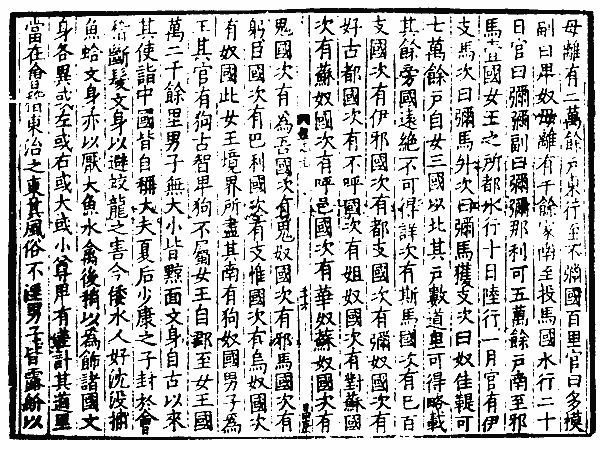 母離有二萬餘戶東行至不彌國百里官曰多模
副曰卑奴母離有千餘家南至投馬國水行二十
日官曰彌彌副曰彌彌那利可五萬餘戶南至邪
馬壹國女王之所都水行十日陸行一月官有伊
支馬次曰彌馬升次曰彌馬獲支次曰奴佳鞮可
七萬餘戶自女三國以北其戶數道里可得略載
其餘旁國遠絕不可得詳次有斯馬國次有巳百
支國次有伊邪國次有都支國次有彌奴國次有
好古都國次有不呼國次有姐奴國次有對蘇國
次有蘇奴國次有呼邑國次有華奴蘇奴國次有
鬼國次有為吾國次有鬼奴國次有邪馬國次有
躬臣國次有巴利國次有支惟國次有烏奴國次
有奴國此女王境界所盡其南有狗奴國男子為
王其官有狗古智卑狗不屬女王自郡至女王國
萬二千餘里男子無大小皆黥面文身自古以來
其使詣中國皆自稱大夫夏后少康之子封於會
稽斷髮文身以避蛟龍之害今倭水人好沈没捕
魚蛤文身亦以厭大魚水禽後稍以為飾諸國文
身各異或左或右或大或小尊卑有差計其道里
當在會稽東治之東其風俗不淫男子皆露紒以